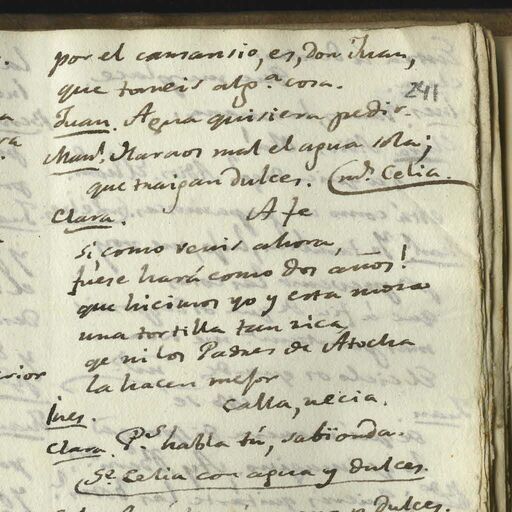 por el cansansio, es, Don Juan,
que toneis alg.ª cosa.
241
Juan. Agua quisiera pedir
Man.l Haraos mal el agua sola;
que traigan dulces. (vd.e Celia.
Clara. A fe
si como venis ahora,
fuese hará como dos años!
que hicimos yo y esta moza
una tortilla tan rica
qe ni los Padres de Atocha
la hacen mejor
rior
Ines. Calla, necia.
Clara. P.s habla tú, sabionda.
Se Celia con agua y dulces.
dulces.